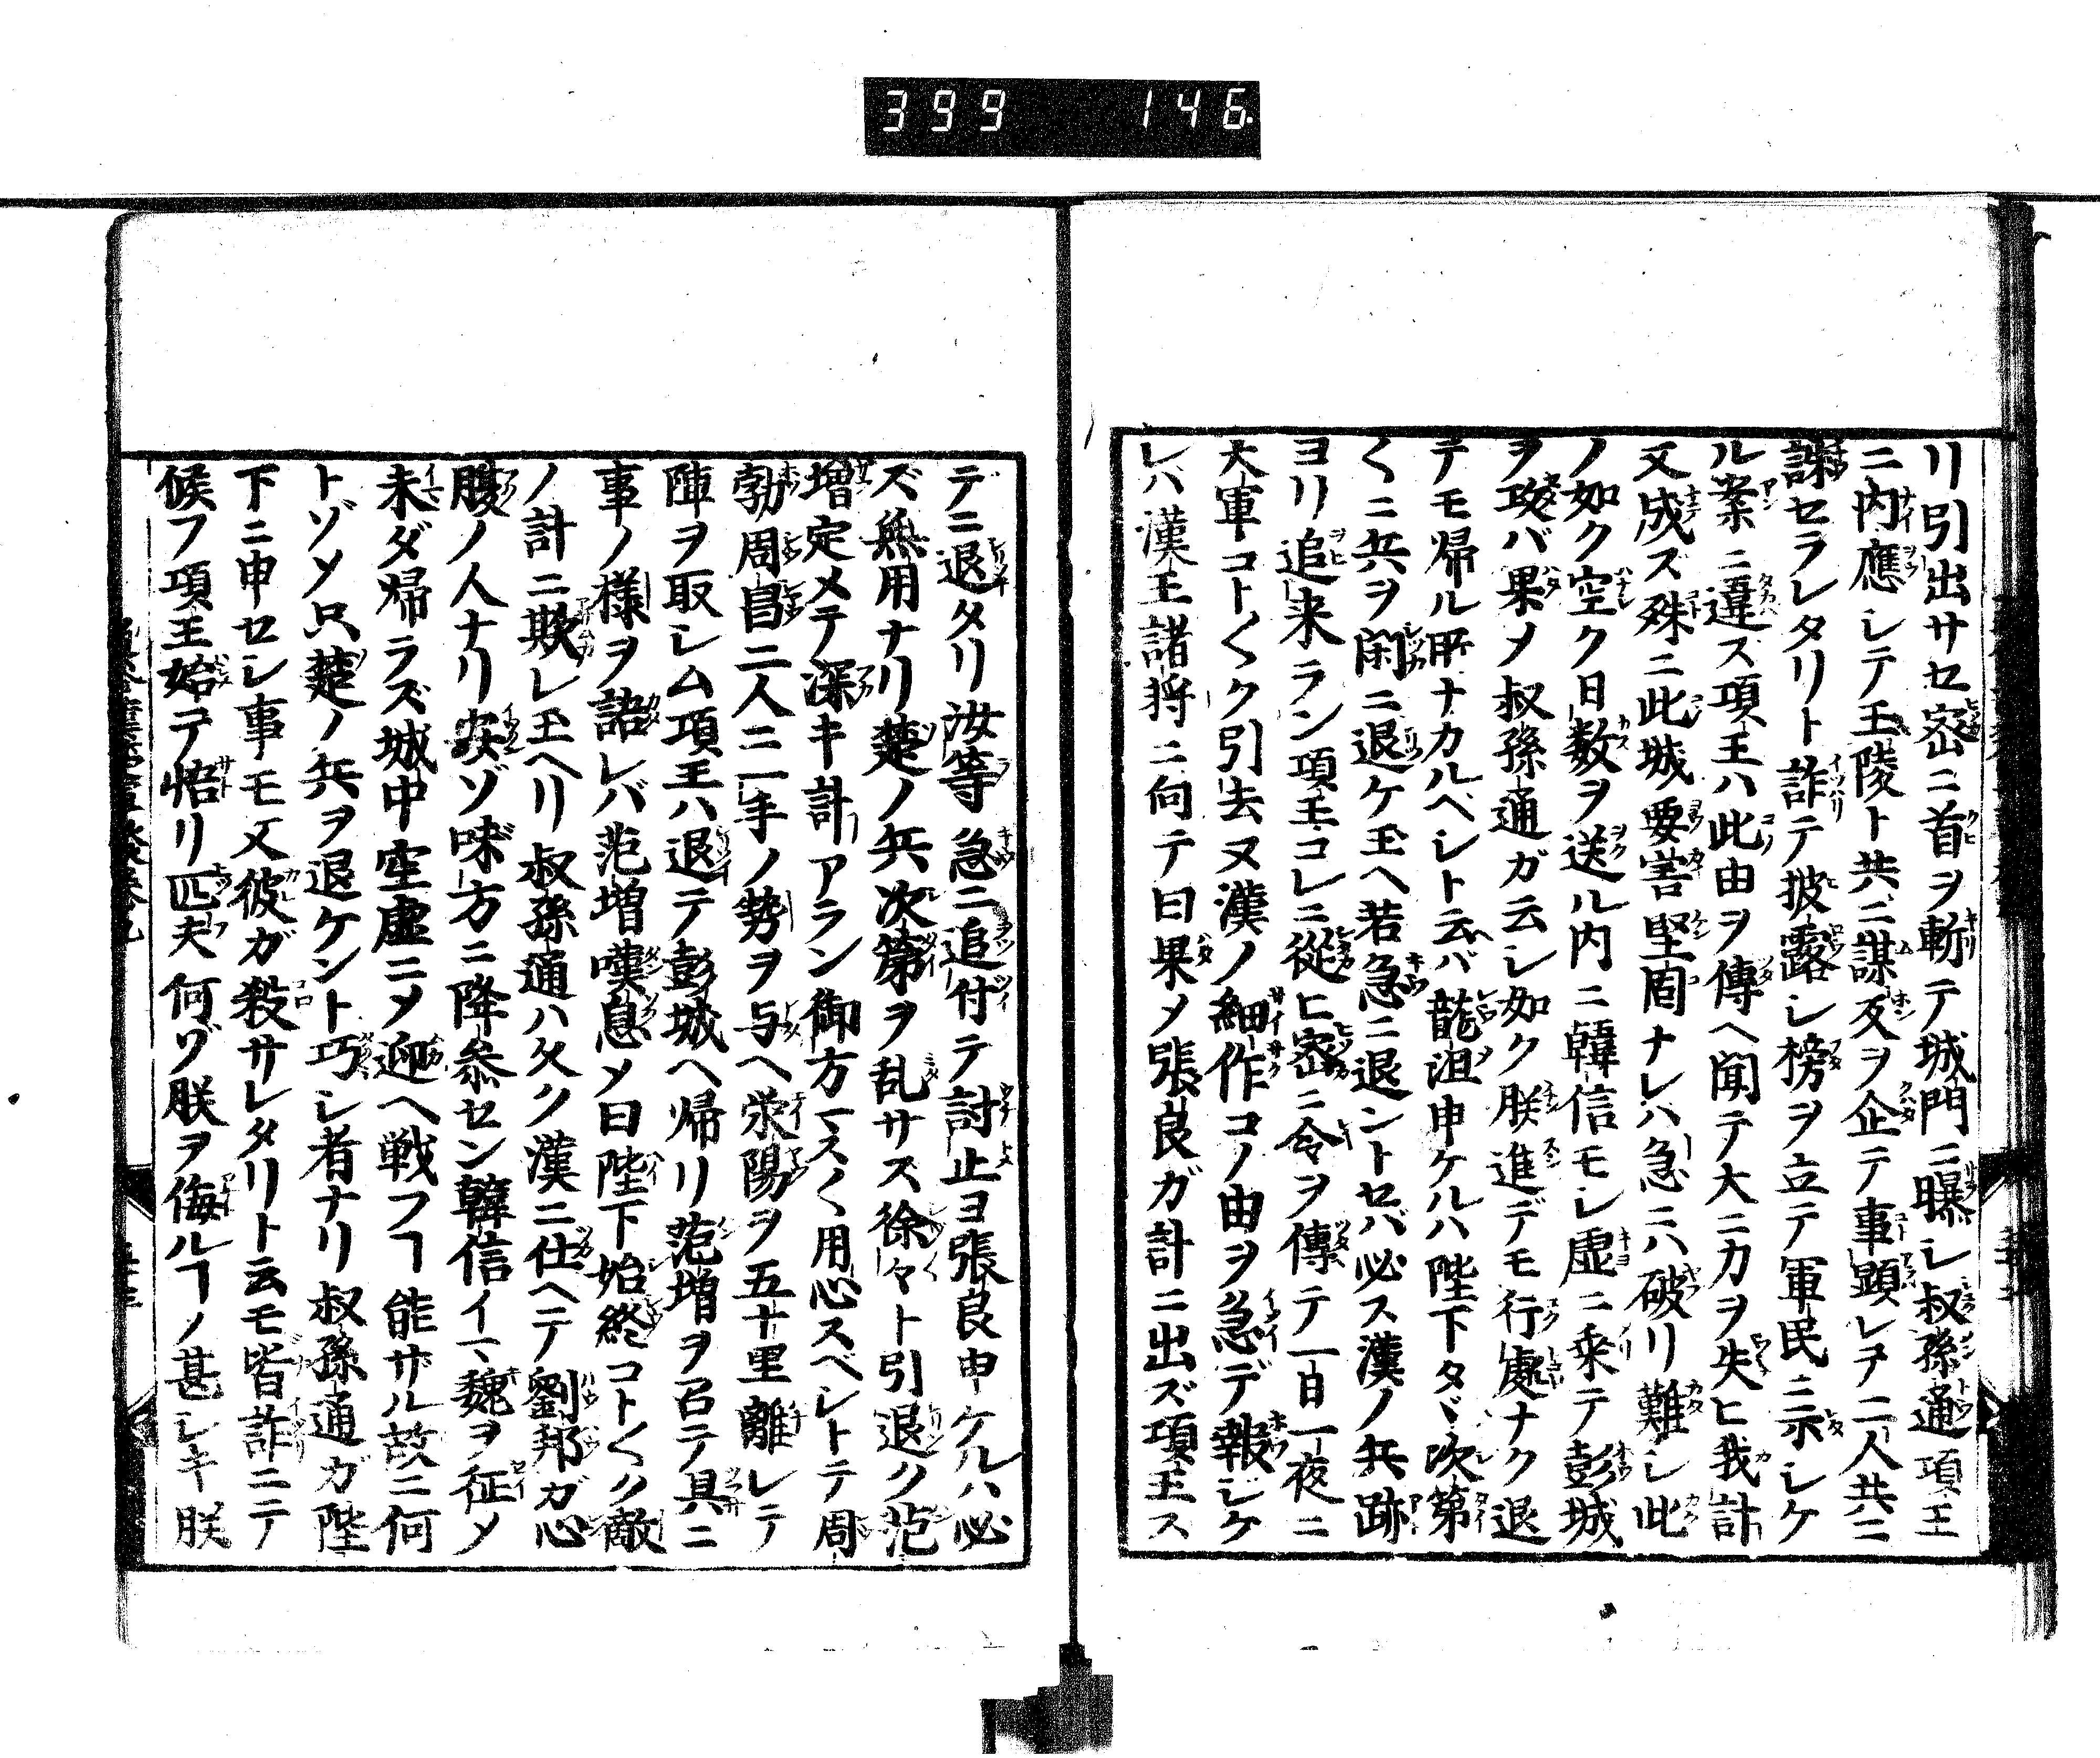 399 146
リ引出サセ密ニ首ヲ斬テ城門ニ曝シ叔孫通項王
ニ内應シテ王陵ト共ニ謀反ヲ企テ事顕レテ二人共ニ
誅セラレタリト詐テ披露シ榜ヲ立テ軍民ニ示シケ
ル案ニ違ス項王ハ此由ヲ傳ヘ聞テ大ニ力ヲ失ヒ我計
又成ズ殊ニ此城要害堅固ナレハ急ニハ破リ難シ此
ノ如ク空ク日数ヲ送ル内ニ韓信モシ虚ニ乗テ彭城
ヲ攻バ果メ叔孫通ガ云シ如ク朕進デモ行處ナク退
テモ帰ル所ナカルヘシト云バ龍沮申ケルハ陛下タヾ次第
〱ニ兵ヲ閑ニ退ケ玉ヘ若急ニ退ントセバ必ス漢ノ兵跡
ヨリ追来ラン項王コレニ從ヒ密ニ令ヲ傳テ一日一夜ニ
大軍コト〱ク引去ヌ漢ノ細作コノ由ヲ急デ報ジケ
レバ漢王諸将ニ向テ曰果メ張良ガ計ニ出ズ項王ス
デニ退タリ汝等急ニ追付テ討止ヨ張良申ケルハ必
ズ無用ナリ楚ノ兵次第ヲ乱サス徐々ト引退ク范
増定メテ深キ計アラン御方マス〱用心スベシトテ周
勃周昌二人ニ一手ノ勢ヲ与ヘ栄陽ヲ五十里離レテ
陣ヲ取シム項王ハ退テ彭城ヘ帰リ范増ヲ召テ具ニ
事ノ様ヲ語レバ范増嘆息メ曰陛下始終コト〱ク敵
ノ計ニ欺レ玉ヘリ叔孫通ハ久ク漢ニ仕ヘテ劉邦ガ心
腹ノ人ナリ安ゾ味方ニ降参セン韓信イマヽ魏ヲ征メ
未ダ帰ラズ城中空虚ニメ迎ヘ戦フヿ能サル故ニ何
トゾメ只楚ノ兵ヲ退ケント巧シ者ナリ叔孫通ガ陛
下ニ申セシ事モ又彼ガ殺サレタリト云モ皆詐ニテ
候フ項王始テ悟リ匹夫何ゾ朕ヲ侮ルヿノ甚シキ朕